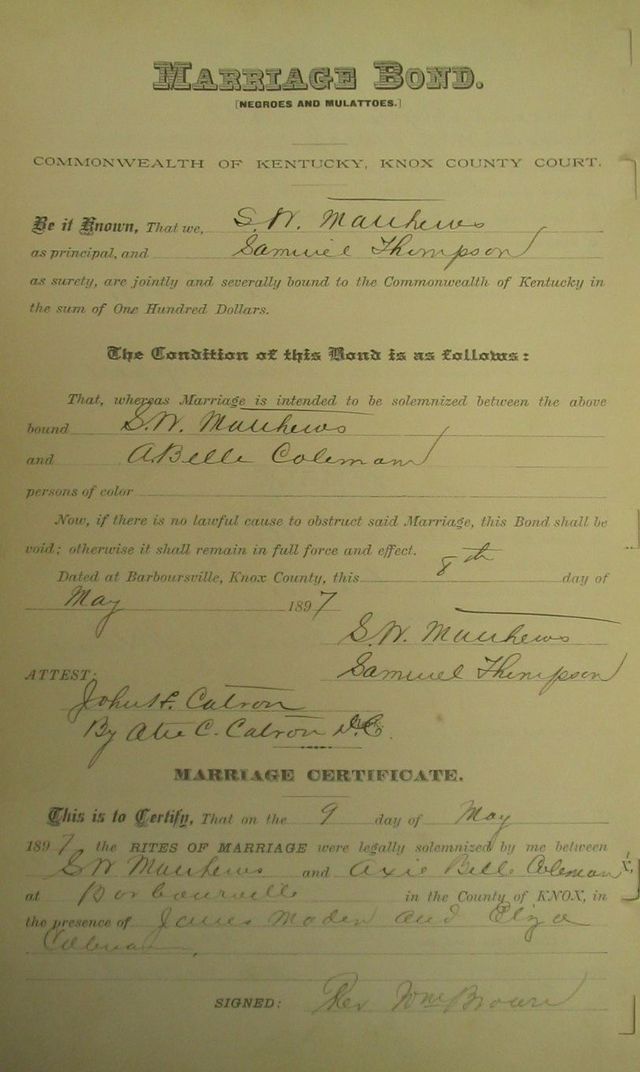 MARRIAGE BOND.
[NEGROES AND MULATTOES.]
COMMONWEALTH OF KENTUCKY, KNOX COUNTY COURT.
Be it Known, That we, S.W. Matthews
as principal, and Samuel Thompson
as surety, are jointly and severally bound to the Commonwealth of Kentucky in
the sum of One Hundred Dollars.
The Condition of this Bond is as follows:
That, whereas Marriage is intended to be solemnized between the above
bound S.W. Matthews
and A. Belle Coleman
persons of color
Now, if there is no lawful cause to obstruct said Marriage, this Bond shall be
void; otherwise it shall remain in full force and effect.
Dated at Barboursville, Knox County, this 8th day of
May 1897
S.W. Matthews
ATTEST: Samuel Thompson
John H. Catron
By Atie C. Catron D.C.
MARRIAGE CERTIFICATE.
This is to Certify, That on the 9 day of May
1897 the RITES OF MARRIAGE were legally solemnized by me between
S W Matthews and Axie Belle Coleman
at Barbourville in the County of KNOX, in
the presence of James Moden and Eliza
Colman,
SIGNED: Rev Wm Brown